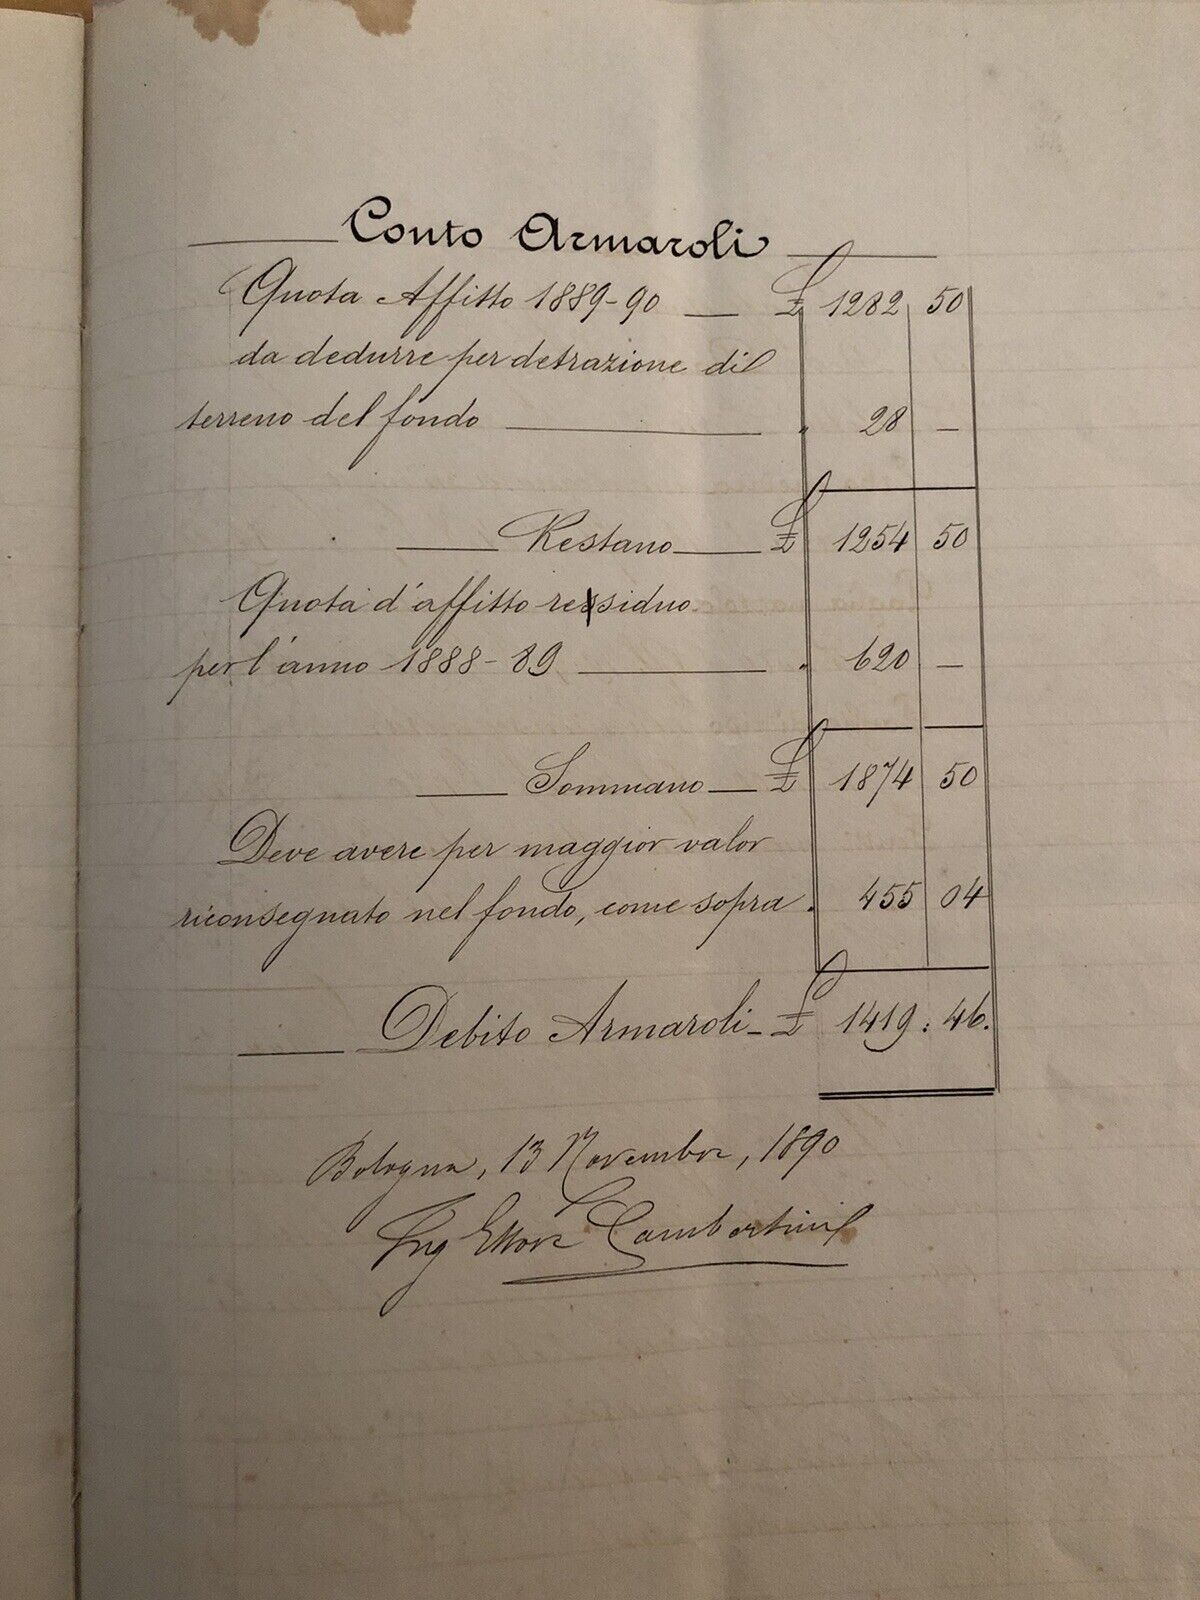 Conto Armaroli
Quota Affitto 1889-90 £ 1282 50
da dedurre per detrazione di
terreno del fondo " 28 —
Restano £ 1254 50
Quota d'affitto residuo
per l'anno 1888-89 " 620 —
Sommano £ 1874 50
Deve avere per maggior valor
riconsegnato nel fondo, come sopra " 455 04
Debito Armaroli £ 1419 : 46.
Bologna, 13 Novembre, 1890
Ing Ettore Lambertini